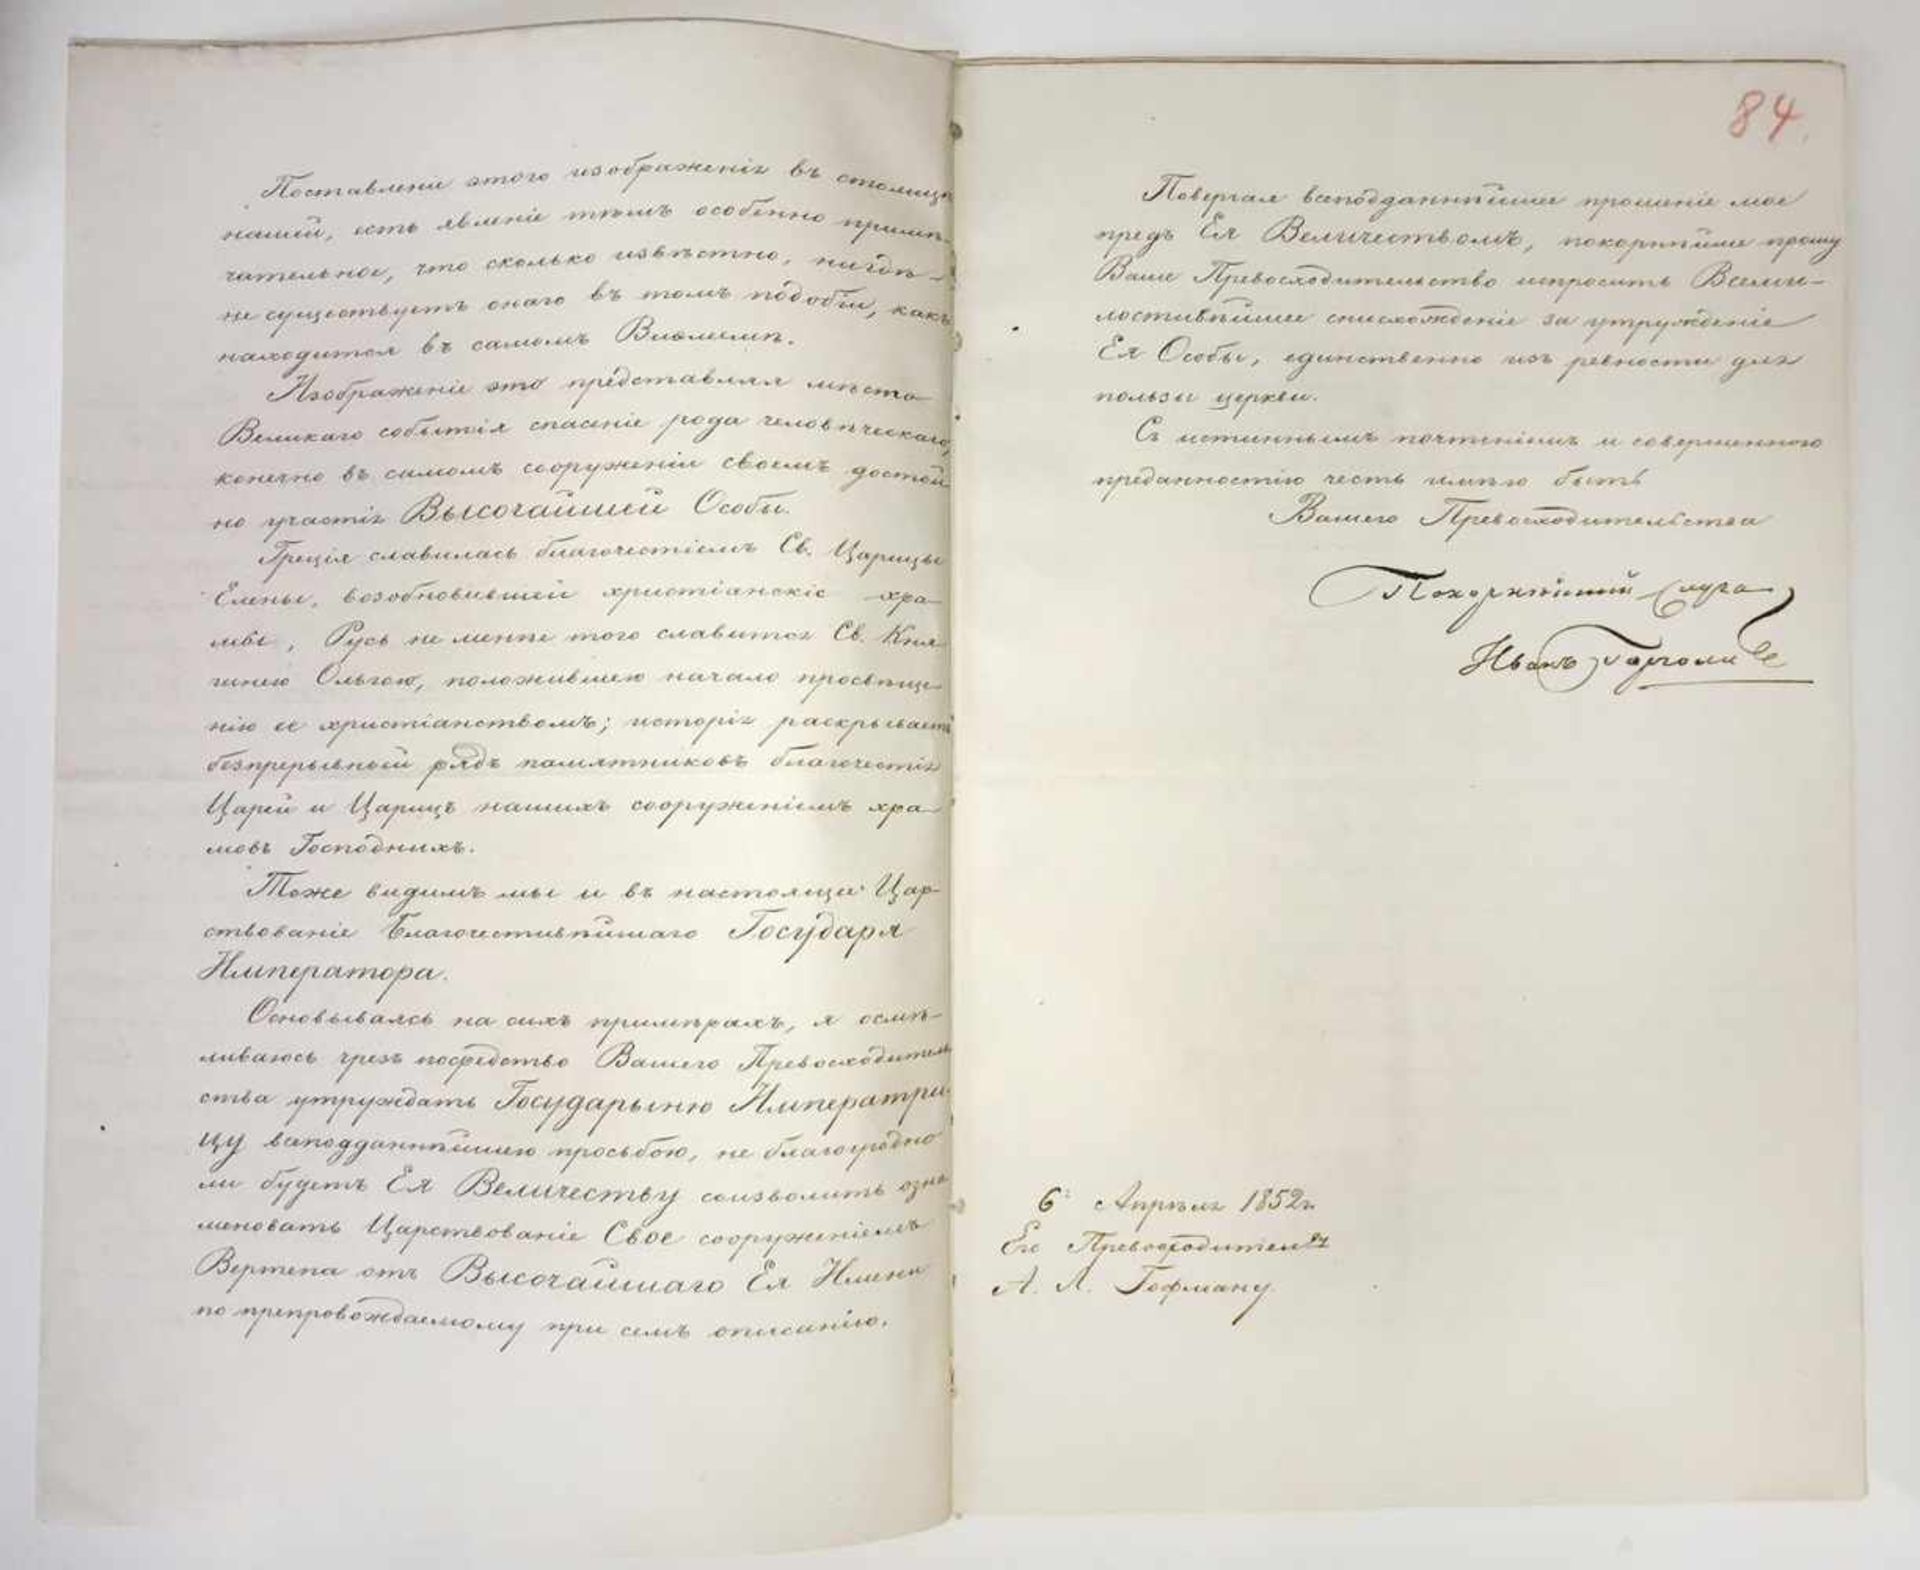 Поставленіе этого изображенія въ столицѣ
нашей, есть явленіе тѣмъ особенно примѣ-
чательное, что сколько извѣстно, нигдѣ
не существуетъ онаго въ томъ подобіи, какъ
находится въ самомъ Виѳлеемѣ.
Изображеніе это представляя мѣсто
Великаго событія спасеніе рода человѣческаго,
конечно въ самомъ сооруженіи своемъ достой
но участія Высочайшей Особы.
Греція славилась благочестіемъ Св. Царицы
Елены, возобновившей христіанскіе хра
мы, Русь не менѣе того славится Св. Кня
гинею Ольгою, положившею начало просвѣще
нію ее христіанствомъ; исторія раскрываетъ
безпрерывный рядъ памятниковъ благочестія
Царей и Царицъ нашихъ сооруженіемъ хра
мовъ Господнихъ.
Тоже видимъ мы и въ настояще Цар
ствованіе Благочестивѣйшаго Государя
Императора.
Основываясь на сихъ примѣрахъ, я осмѣ-
ливаюсь чрезъ посредство Вашего Превосходитель
ства утруждать Государыню Императри-
цу всеподданнѣйшею просьбою, не благоугодно
ли будетъ Ея Величеству соизволить озна
меновать Царствованіе Свое сооруженіемъ
Вертепа отъ Высочайшаго Ея Имени
по препровождаемому при семъ описанію.
84.
Повергая всеподданнѣйшее прошеніе мое
предъ Ея Величествомъ, покорнѣйше прошу
Ваше Превосходительство испросить Всеми-
лостивѣйшее снисхожденіе за утружденіе
Ея Особы, единственно изъ ревности для
пользы церкви.
Съ истиннымъ почтеніемъ и совершенною
преданностію честь имѣю быть
Вашего Превосходительства
Покорнѣйшій слуга
Иванъ
6г Апрѣля 1852 г.
Его Превосходител-ву
А. Л. Гофману